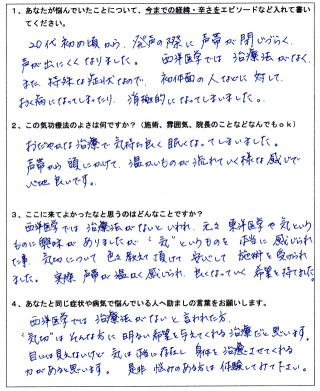 1、あなたが悩んでいたことについて、今までの経緯・辛さをエピソードなど入れて書いてください。
20代初めの頃から、発声の際に声帯が閉じづらく、
声が出にくくなりました。西洋医学では治療法がなく、
また特殊な症状なので、初体面の人などに対して、
おく病になってしまったり、消極的になってしまいました。
2、この気功療法のよさは何ですか？（施術、雰囲気、院長のことなどなんでもok）
おだやかな治療で気持ち良く眠くなってしまいます。
声帯から頭にかけて、温かいものが流れていく様な感じで
心地良いです。
3、ここに来てよかったなと思うのはどんなことですか？
西洋医学では治療法がないといわれ、元々東洋医学や気という
ものに興味がありましたが“気”というものを本当に感じられ
た事、気功について色々教えて頂けて安心して施術を受けられ
ました。実際声帯が温かく感じられ、良くなっていく希望を持てました。
4、あなたと同じ症状や病気で悩んでいる人へ励ましの言葉をお願いします。
西洋医学では治療法がないと言われた方、
“気功”はそんな方に明るい希望を与えてくれる治療だと思います。
目には見えないけど気は確に存在し身体を治療させてくれる
力があると思います。是非悩みのある方は体験してみて下さい。